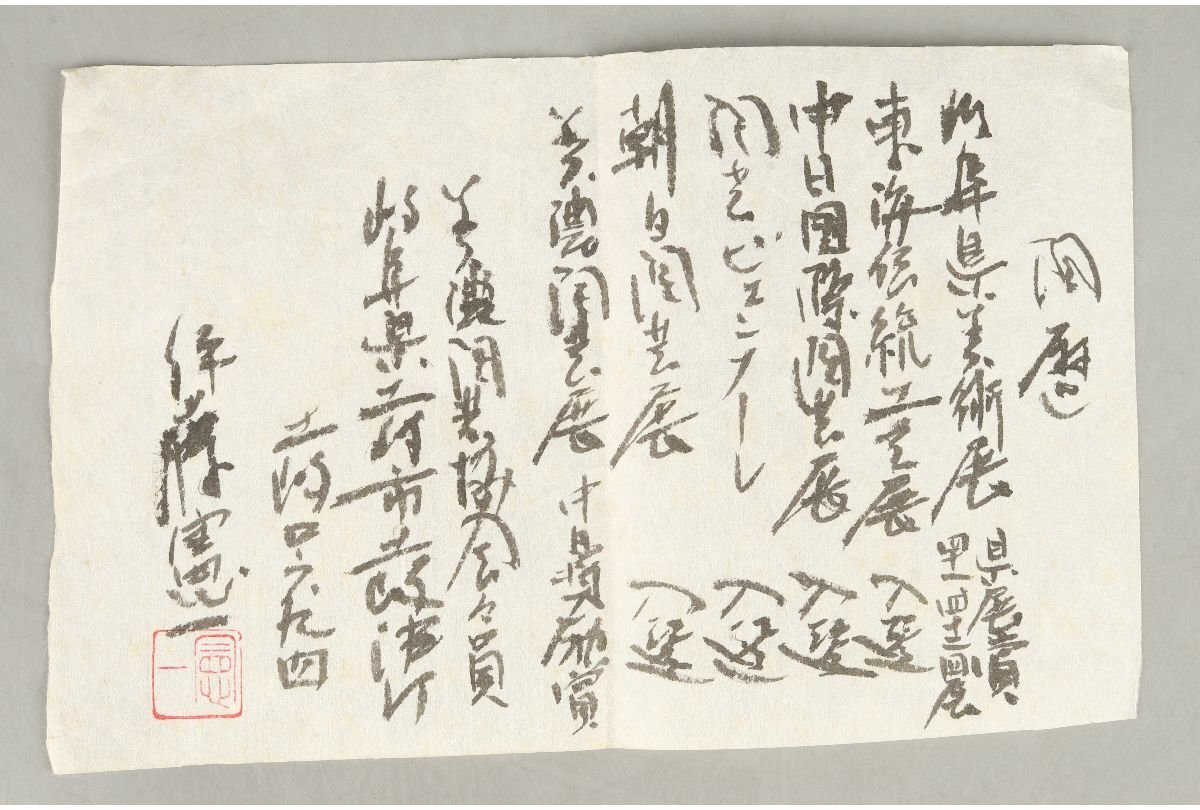 陶歴
岐阜県美術展 県展賞
四十一 四十二回展
東海伝統工芸展 入選
中日国際陶芸展 入選
陶芸ビエンナーレ 入選
朝日陶芸展 入選
美濃陶芸展 中日奨励賞
美濃陶芸協会々員
岐阜県土岐市土岐津町
土岐口
伊藤憲一
憲一